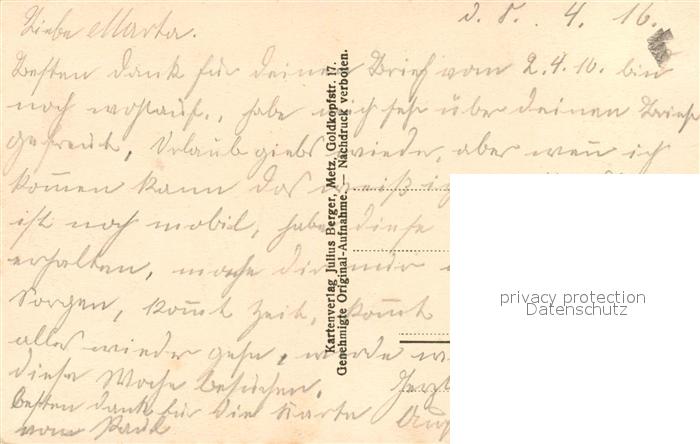 d. 8. 4. 16.
Liebe Marta.
Besten Dank für deinen Brief vom 2.4.16. bin
noch wohlauf, habe mich sehr über deinen Brief
gefreut, Urlaub giebs wieder, aber wenn ich
kommen kann das weiß ich
ist noch mobil, habe diese
erhalten, mache dir nur
Sorgen, kommt Zeit, kommt
alles wieder gehn, werde
diese Woche besuchen.
besten dank für die Karte
von Paul
Kartenverlag Julius Berger, Metz, Goldkopfstr. 17.
Genehmigte Original-Aufnahme. — Nachdruck verboten.
privacy protection
Datenschutz